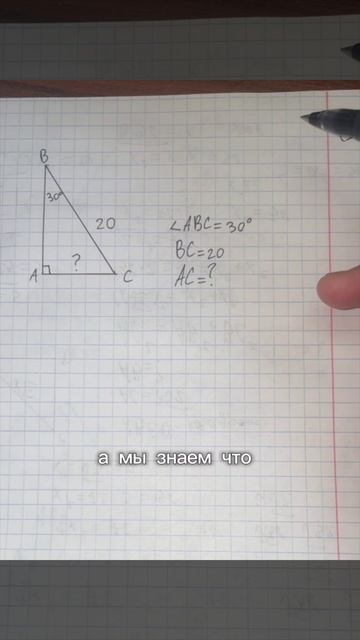 B
30°
20
?
A
C
∠ABC=30°
BC=20
AC=?
а мы знаем что